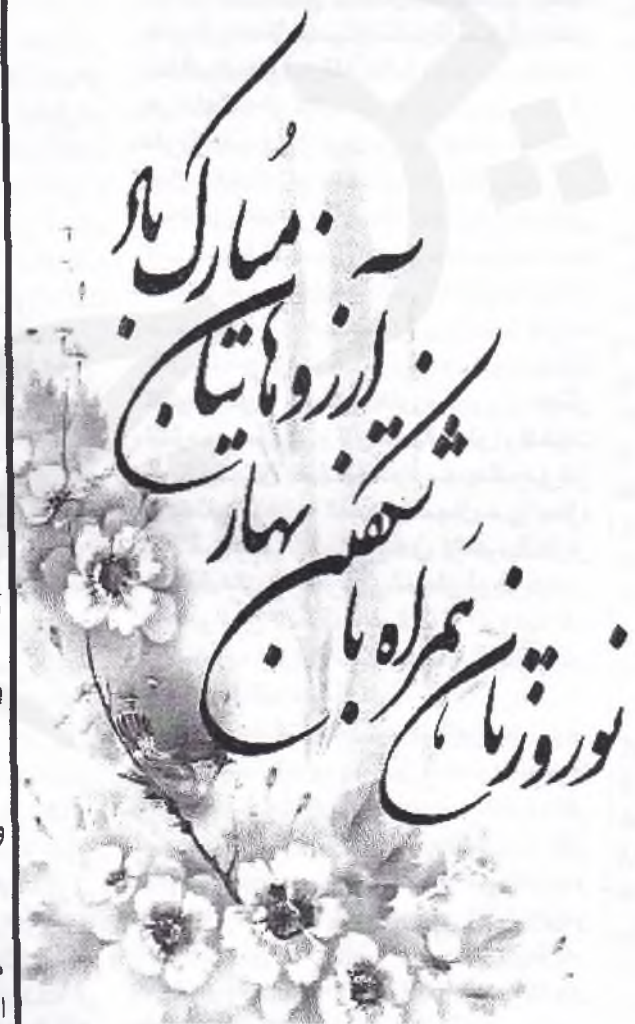 نوروزتان هَمراه با
شکفتن بهار
آرزوهایتان
مُبارک باد